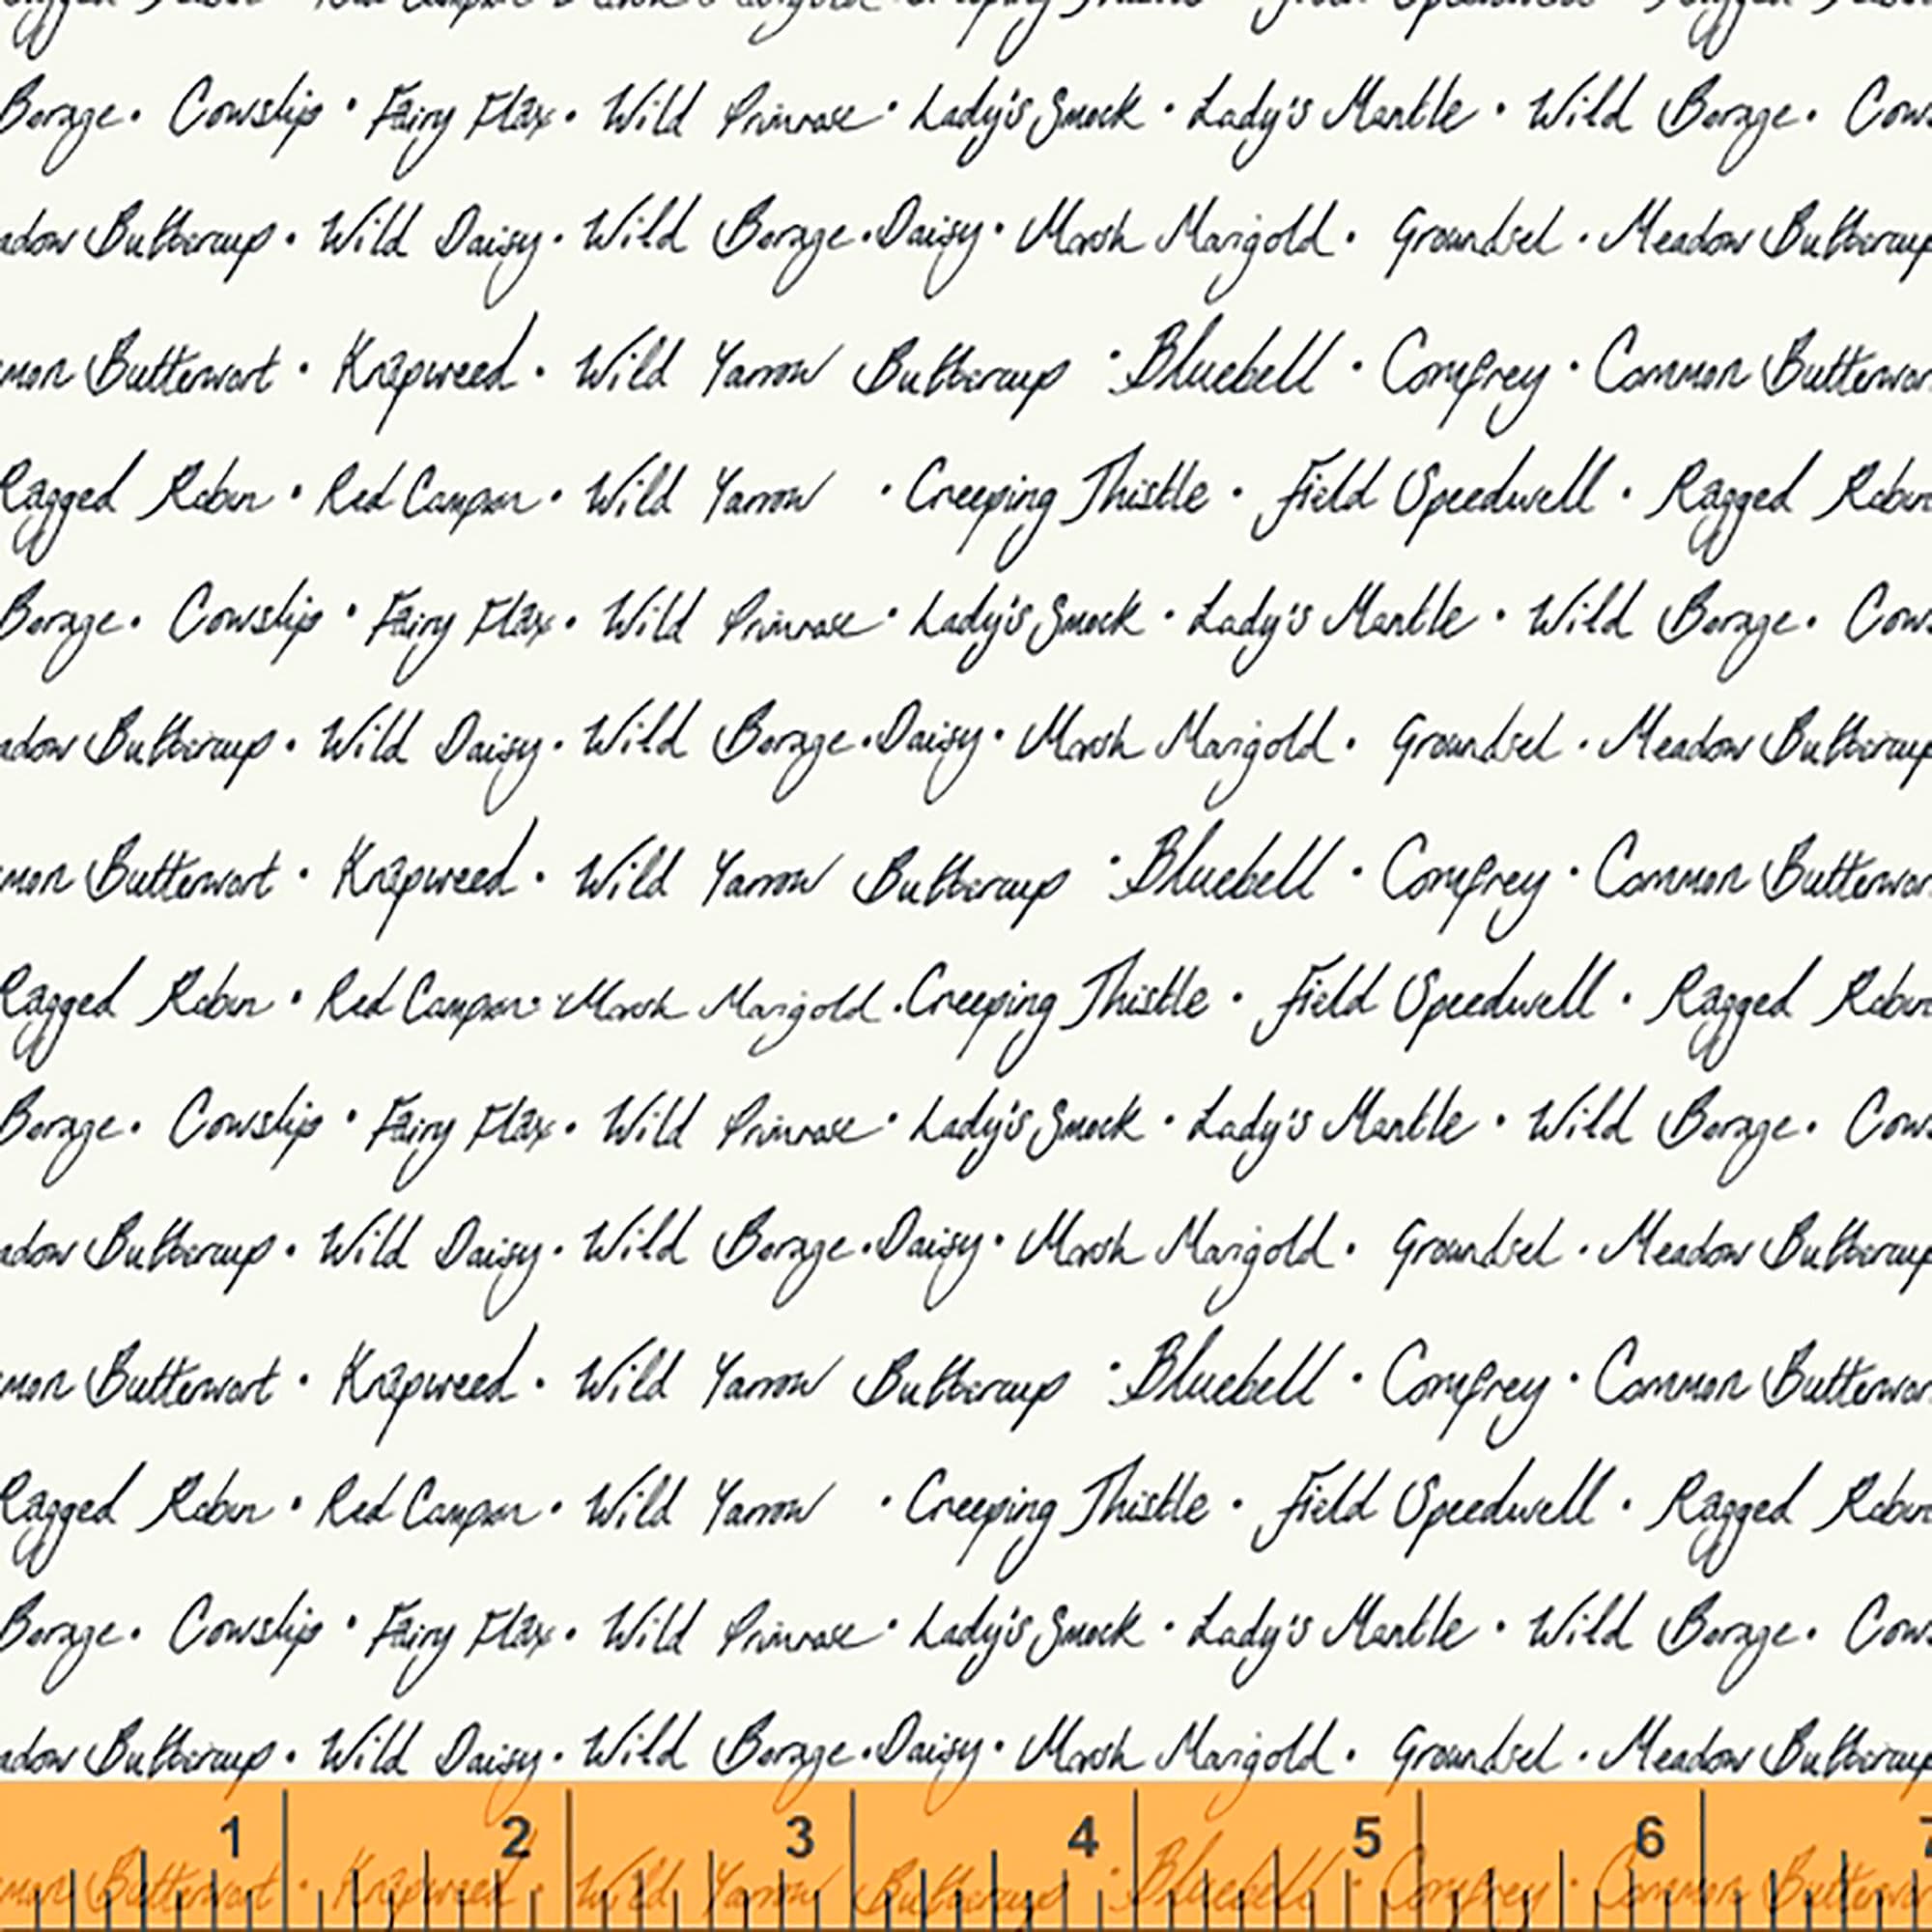 Borage. Cowslip • Fairy Flax • Wild Primrose • Lady's Smock • Lady's Mantle • Wild Borage. Cows
adow Buttercup • Wild Daisy • Wild Borage • Daisy • Marsh Marigold • Groundsel • Meadow Buttercup
mon Butterwort • Knapweed • Wild Yarrow Buttercup • Bluebell • Comfrey • Common Butterwor
Ragged Robin • Red Campion • Wild Yarrow • Creeping Thistle • Field Speedwell • Ragged Robin
Borage. Cowslip • Fairy Flax • Wild Primrose • Lady's Smock • Lady's Mantle • Wild Borage. Cows
adow Buttercup • Wild Daisy • Wild Borage • Daisy • Marsh Marigold • Groundsel • Meadow Buttercup
mon Butterwort • Knapweed • Wild Yarrow Buttercup • Bluebell • Comfrey • Common Butterwor
Ragged Robin • Red Campion • Marsh Marigold • Creeping Thistle • Field Speedwell • Ragged Robin
Borage. Cowslip • Fairy Flax • Wild Primrose • Lady's Smock • Lady's Mantle • Wild Borage. Cows
adow Buttercup • Wild Daisy • Wild Borage • Daisy • Marsh Marigold • Groundsel • Meadow Buttercup
mon Butterwort • Knapweed • Wild Yarrow Buttercup • Bluebell • Comfrey • Common Butterwor
Ragged Robin • Red Campion • Wild Yarrow • Creeping Thistle • Field Speedwell • Ragged Robin
Borage. Cowslip • Fairy Flax • Wild Primrose • Lady's Smock • Lady's Mantle • Wild Borage. Cows
adow Buttercup • Wild Daisy • Wild Borage • Daisy • Marsh Marigold • Groundsel • Meadow Buttercup
1 2 3 4 5 6 7
mon Butterwort • Knapweed • Wild Yarrow Buttercup • Bluebell • Comfrey • Common Butterwor